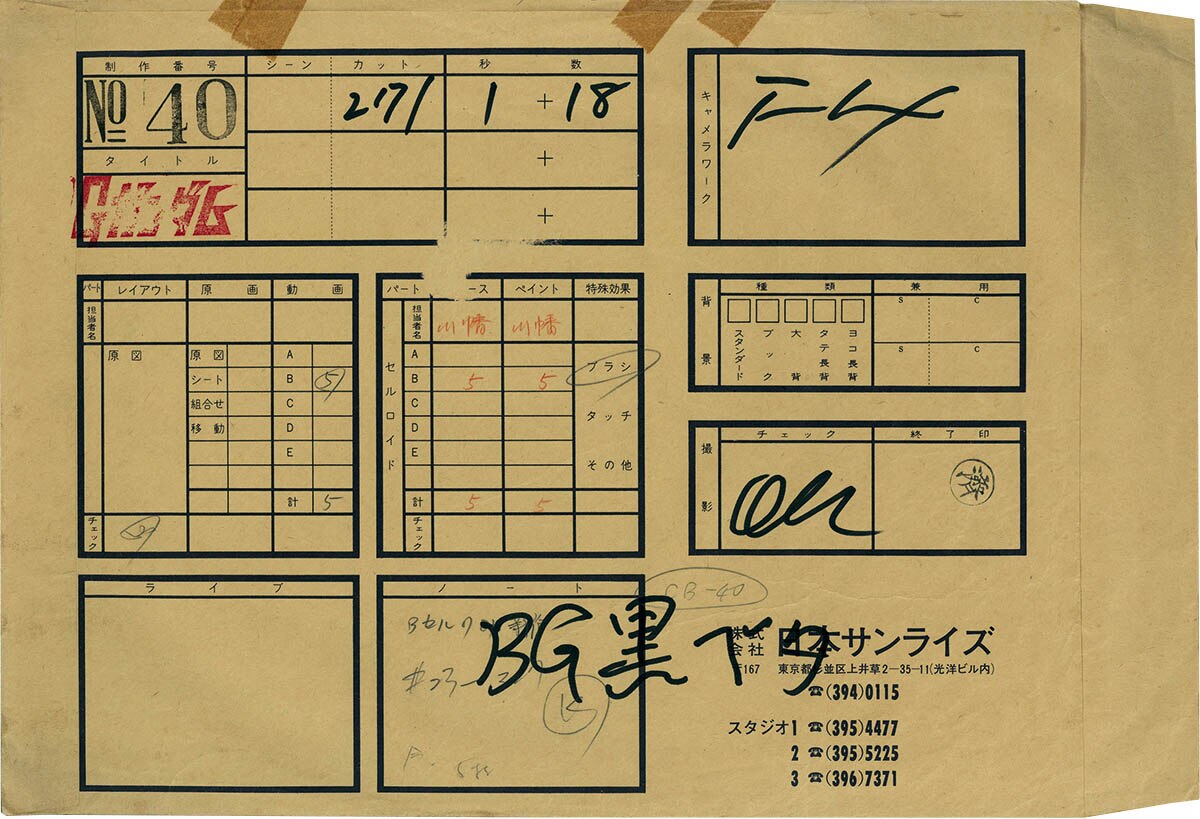 制作番号 シーン カット 秒 数
No 40 271 1 + 18
タイトル +
ガンダム +
キャメラワーク
パート レイアウト 原画 動画
担当者名
原図 原図 A
シート B 5
組合せ C
移動 D
E
計 5
チェック
パート ース ペイント 特殊効果
担当者名 川幡 川幡
セルロイド
A
B 5 5
C
D
E
計 5 5
チェック
ブラシ
タッチ
その他
背景 種類 兼用
スタンダード ブック 大背 タテ長背 ヨコ長背
S C
S C
撮影 チェック 終了印
OK 済
ライブ
ノート
CB-40
Bセル
BG黒ベタ
株式会社 日本サンライズ
〒167 東京都杉並区上井草2-35-11(光洋ビル内)
☎(394)0115
スタジオ1 ☎(395)4477
2 ☎(395)5225
3 ☎(396)7371